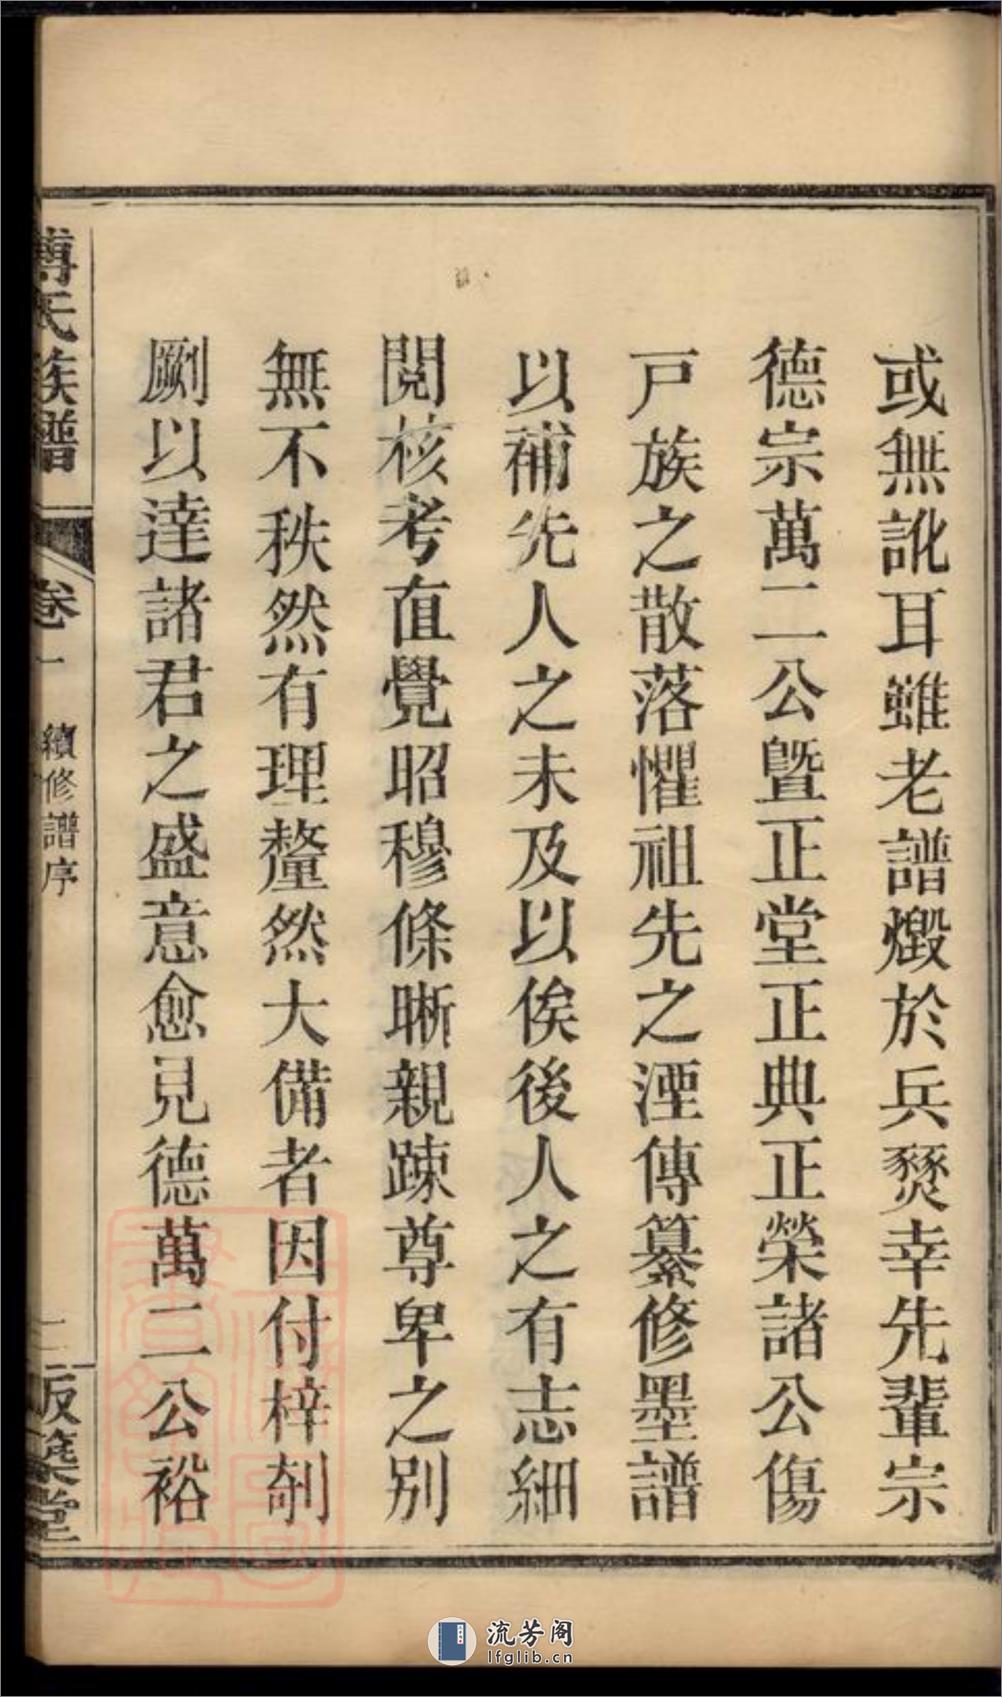 或無訛耳雖老譜燬於兵燹幸先輩宗
德宗萬二公暨正堂正典正榮諸公傷
戸族之散落懼祖先之湮傳纂修墨譜
以補先人之未及以俟後人之有志細
閱核考直覺昭穆條晰親踈尊卑之别
無不秩然有理釐然大備者因付梓剞
劂以達諸君之盛意愈見德萬二公裕
傅氏族譜
卷一
續修譜序
二
版築堂
流芳阁
lfglib.cn